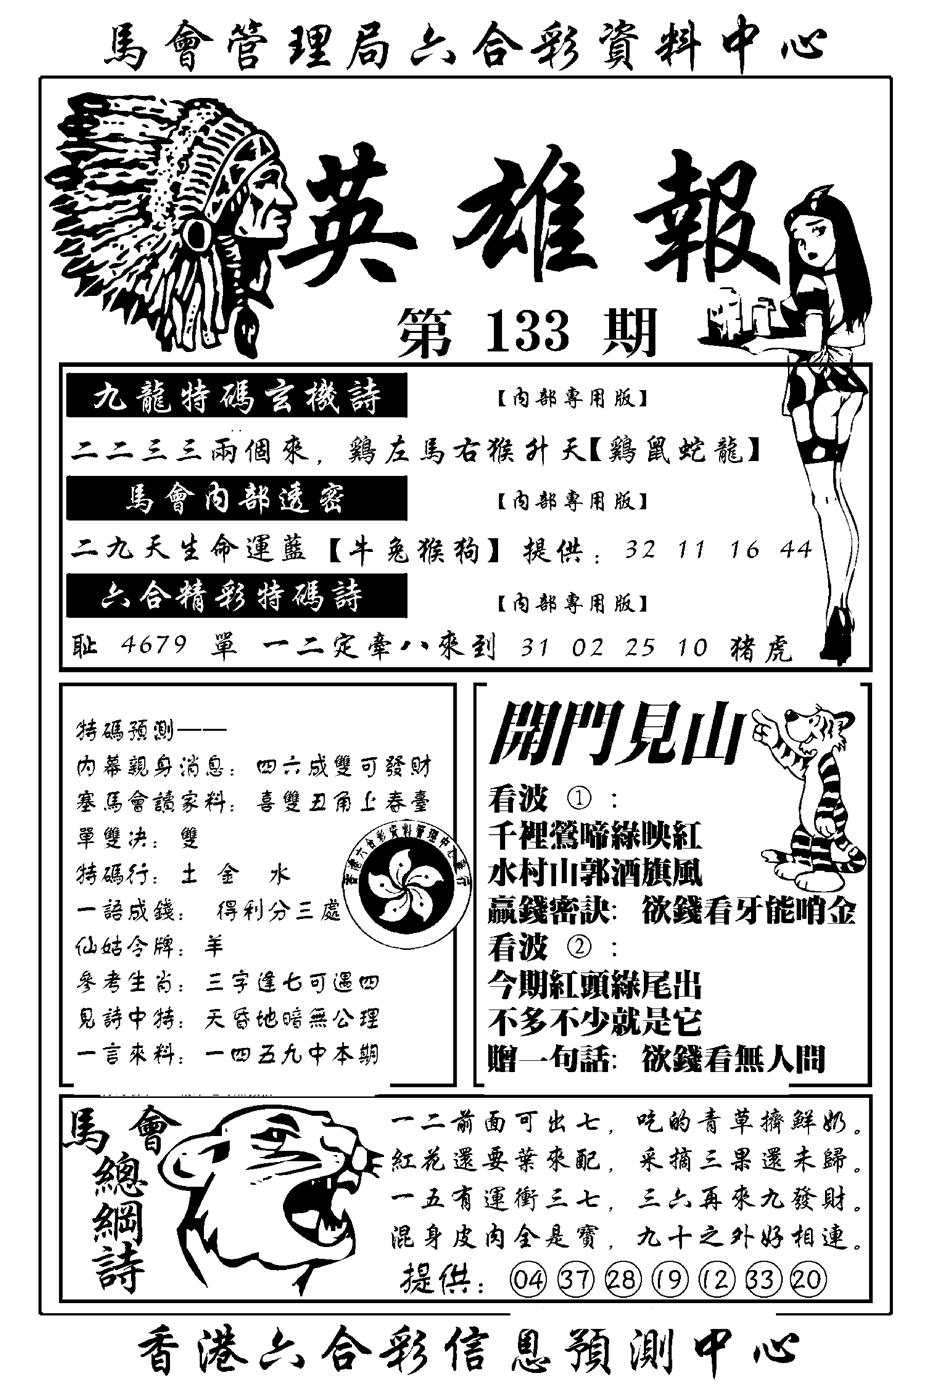 馬會管理局六合彩資料中心
英雄報
第 133 期
九龍特碼玄機詩 【內部專用版】
二二三三兩個來，鷄左馬右猴升天【鷄鼠蛇龍】
馬會內部透密 【內部專用版】
二九天生命運藍【牛兔猴狗】提供：32 11 16 44
六合精彩特碼詩 【內部專用版】
耻 4679 單 一二定牽八來到 31 02 25 10 猪虎
特碼預測——
內幕親身消息：四六成雙可發財
塞馬會讀家料：喜雙丑角上春臺
單雙决：雙
特碼行：土 金 水
一語成錢：得利分三處
仙姑令牌：羊
參考生肖：三字逢七可遇四
見詩中特：天昏地暗無公理
一言來料：一四五九中本期
香港六合彩資料管理中心發行
開門見山
看波 ①：
千裡鶯啼綠映紅
水村山郭酒旗風
贏錢密訣：欲錢看牙能哨金
看波 ②：
今期紅頭綠尾出
不多不少就是它
贈一句話：欲錢看無人問
馬會
總綱詩
一二前面可出七，吃的青草擠鮮奶。
紅花還要葉來配，采摘三果還未歸。
一五有運衝三七，三六再來九發財。
混身皮肉全是寶，九十之外好相連。
提供：04 37 28 19 12 33 20
香港六合彩信息預測中心